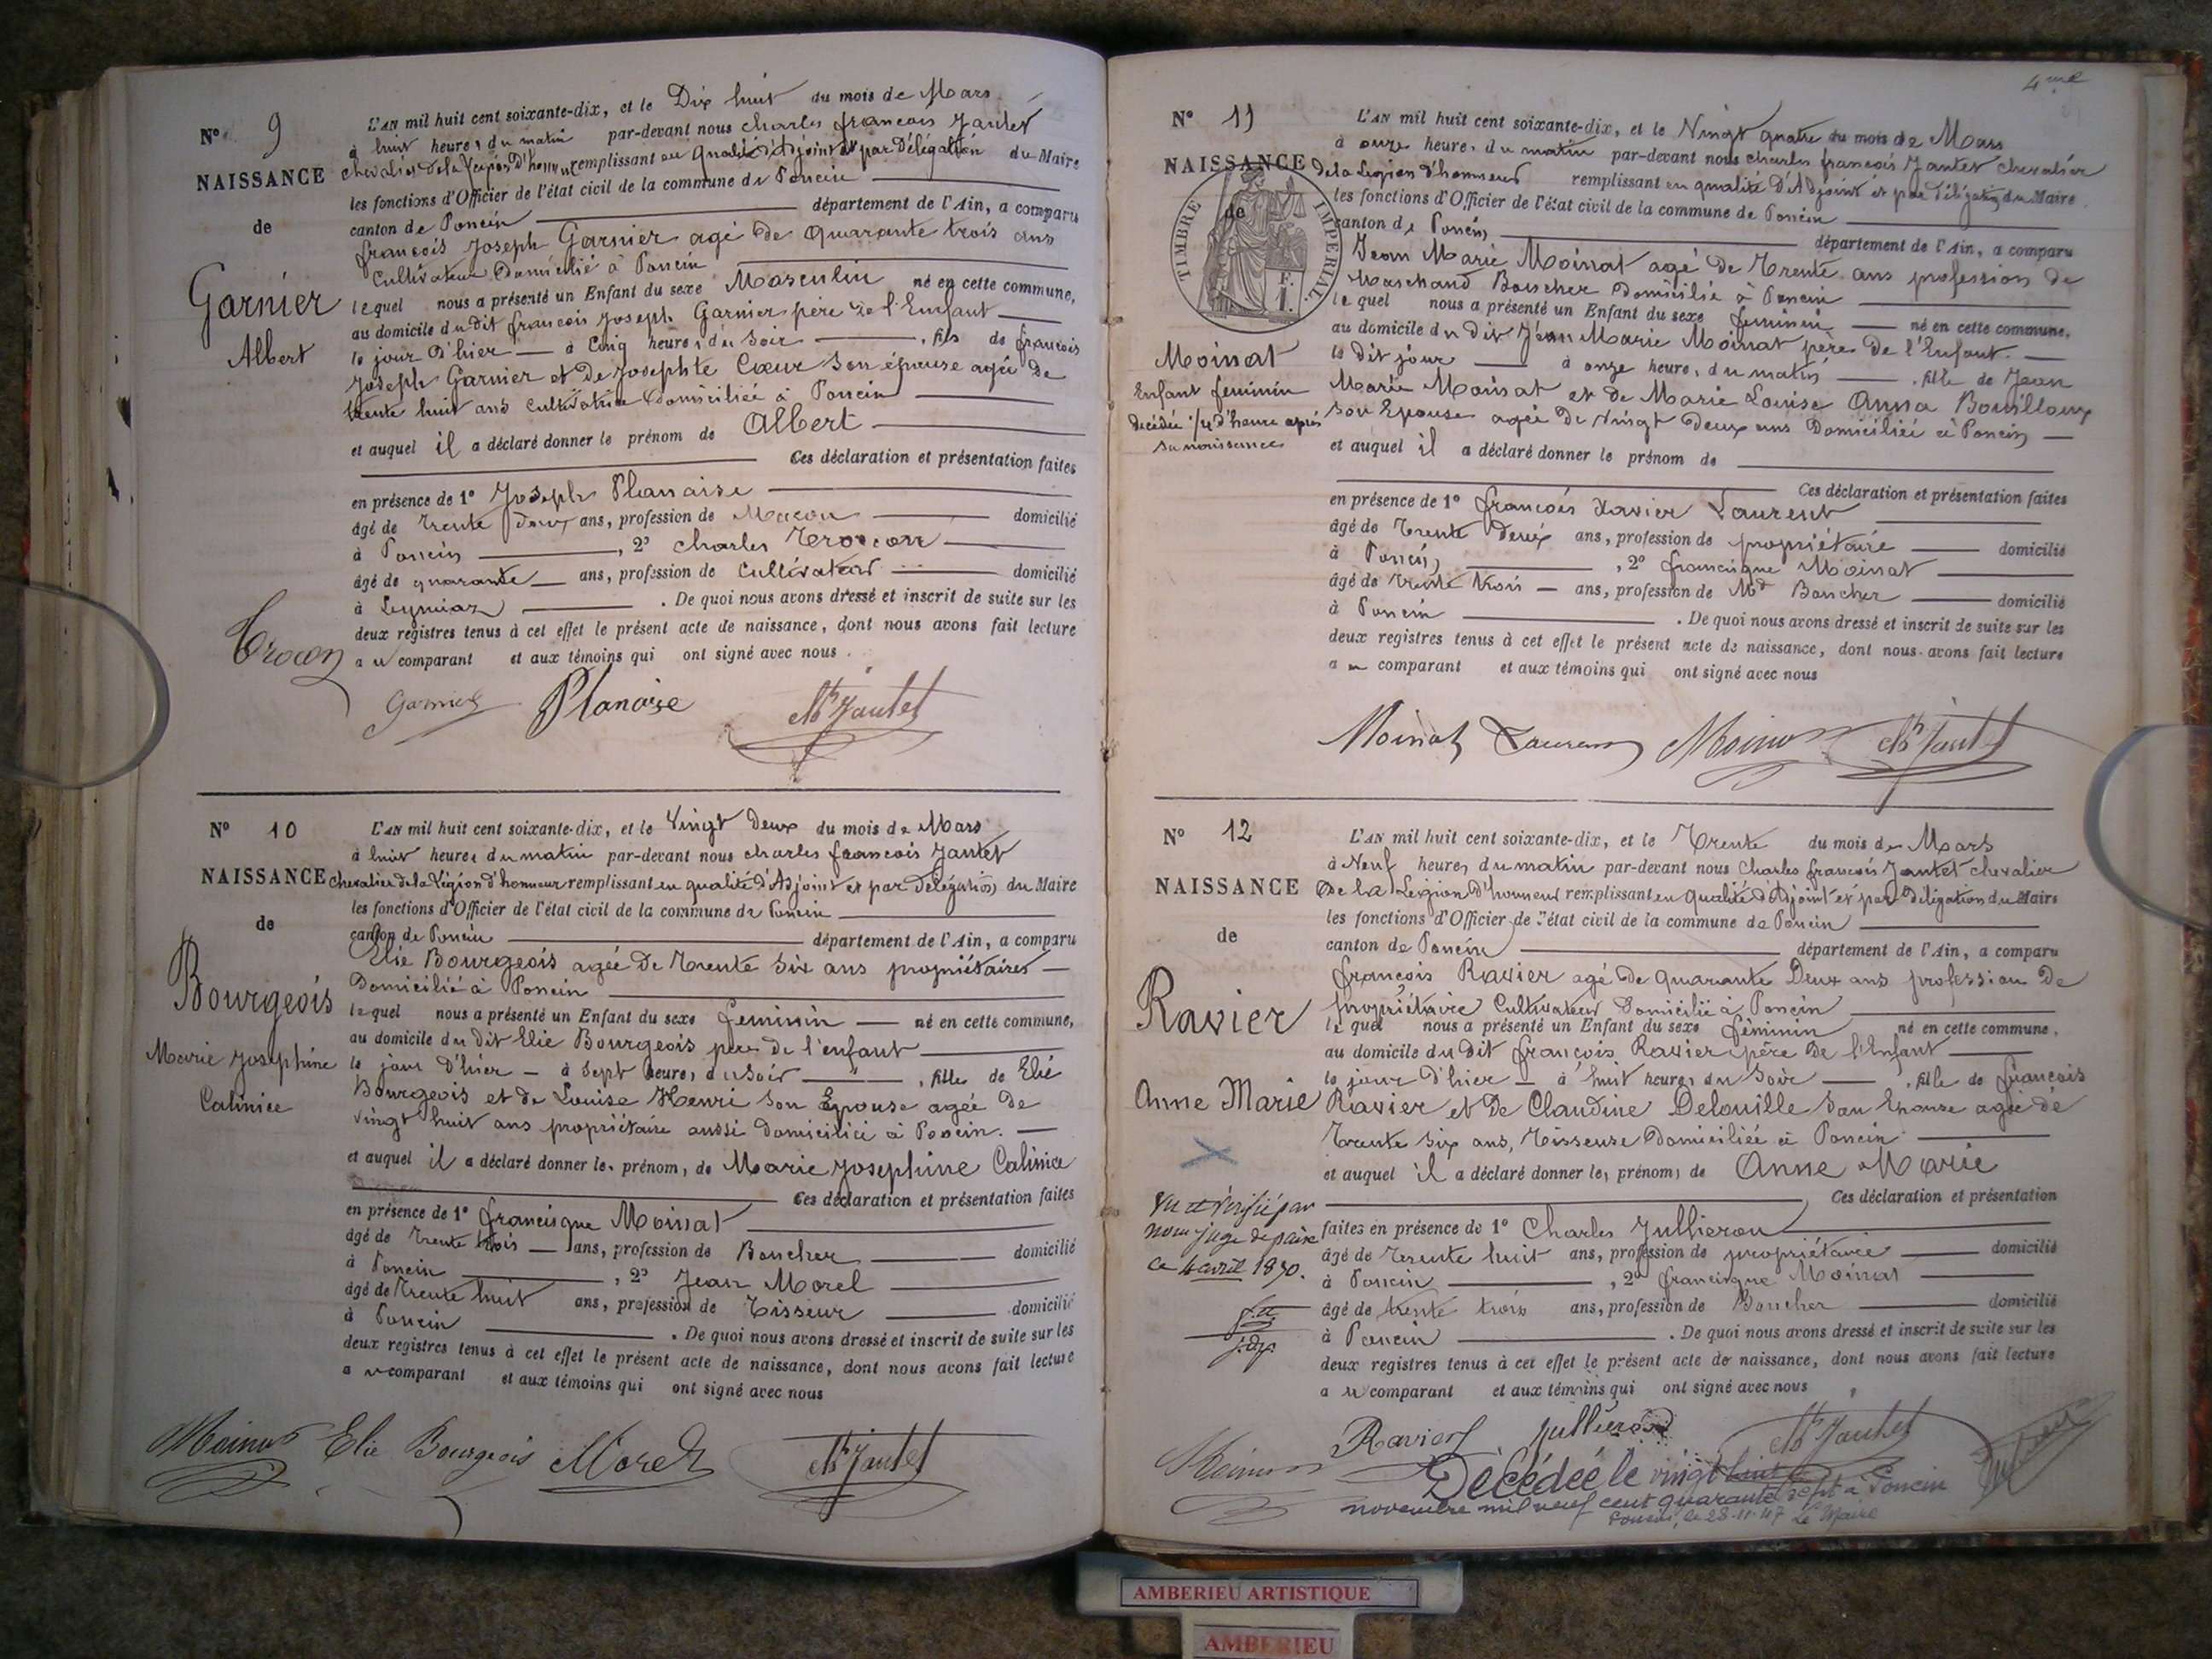 N° 9
NAISSANCE
de
Garnier
Albert
L'AN mil huit cent soixante-dix, et le Dix huit du mois de Mars
à huit heures du matin par-devant nous charles francois Jantet
chevalier de la Légion d'honneur remplissant en qualité d'Adjoint et par Délégation du Maire
les fonctions d'Officier de l'état civil de la commune de Poncin
canton de Poncin département de l'Ain, a comparu
francois Joseph Garnier agé de quarante trois ans
Cultivateur Domicilié à Poncin
lequel nous a présenté un Enfant du sexe Masculin né en cette commune,
au domicile du dit francois Joseph Garnier père de l'Enfant
le jour d'hier à Cinq heures du soir, fils de francois
Joseph Garnier et de Josephte Cœur son épouse agée de
trente huit ans cultivatrice domiciliée à Poncin
et auquel il a déclaré donner le prénom de Albert
Ces déclaration et présentation faites
en présence de 1° Joseph Planaise
âgé de trente deux ans, profession de Macon domicilié
à Poncin, 2° charles
âgé de quarante ans, profession de Cultivateur domicilié
à Leymiaz. De quoi nous avons dressé et inscrit de suite sur les
deux registres tenus à cet effet le présent acte de naissance, dont nous avons fait lecture
au comparant et aux témoins qui ont signé avec nous.
Garnier Planaise Ch Jantet
N° 10
NAISSANCE
de
Bourgeois
Marie Josephine
Calinice
L'AN mil huit cent soixante-dix, et le Vingt Deux du mois de Mars
à huit heures du matin par-devant nous charles francois Jantet
chevalier de la Légion d'honneur remplissant en qualité d'Adjoint et par Délégation du Maire
les fonctions d'Officier de l'état civil de la commune de Poncin
canton de Poncin département de l'Ain, a comparu
Elie Bourgeois agée de Trente Six ans propriétaires
Domicilié à Poncin
lequel nous a présenté un Enfant du sexe feminin né en cette commune,
au domicile du dit Elie Bourgeois père de l'enfant
le jour d'hier à Sept heures du Soir, fille de Elie
Bourgeois et de Louise Henri son Epouse agée de
vingt huit ans propriétaire aussi domiciliée à Poncin.
et auquel il a déclaré donner les prénoms de Marie Josephine Calinice
Ces déclaration et présentation faites
en présence de 1° francisque Moinat
âgé de Trente trois ans, profession de Boucher domicilié
à Poncin, 2° Jean Morel
âgé de Trente huit ans, profession de Tisseur domicilié
à Poncin. De quoi nous avons dressé et inscrit de suite sur les
deux registres tenus à cet effet le présent acte de naissance, dont nous avons fait lecture
au comparant et aux témoins qui ont signé avec nous
Moinat Elie Bourgeois Morel Ch Jantet
4me
N° 11
NAISSANCE
de
TIMBRE IMPERIAL
1 F.
Moinat
Enfant feminin
décédée 1/4 d'heure après
sa naissance
L'AN mil huit cent soixante-dix, et le Vingt quatre du mois de Mars
à onze heures du matin par-devant nous charles francois Jantet chevalier
de la Legion d'honneur remplissant en qualité d'Adjoint et par Délégation du Maire
les fonctions d'Officier de l'état civil de la commune de Poncin
canton de Poncin département de l'Ain, a comparu
Jean Marie Moinat agé de Trente ans profession de
Marchand Boucher Domicilié à Poncin
lequel nous a présenté un Enfant du sexe feminin né en cette commune,
au domicile du dit Jean Marie Moinat père de l'Enfant.
le dit jour à onze heures du matin, fille de Jean
Marie Moinat et de Marie Louise Anna Bouilloux
son Epouse agée de vingt deux ans Domiciliée à Poncin
et auquel il a déclaré donner le prénom de
Ces déclaration et présentation faites
en présence de 1° francois Xavier Laurent
âgé de Trente Deux ans, profession de propriétaire domicilié
à Poncin, 2° francisque Moinat
âgé de trente trois ans, profession de Md Boucher domicilié
à Poncin. De quoi nous avons dressé et inscrit de suite sur les
deux registres tenus à cet effet le présent acte de naissance, dont nous avons fait lecture
au comparant et aux témoins qui ont signé avec nous
Moinat Laurent Moinat Ch Jantet
N° 12
NAISSANCE
de
Ravier
Anne Marie
Vu et Vérifié par
nous juge de paix
ce 4 avril 1870.
L'AN mil huit cent soixante-dix, et le Trente du mois de Mars
à Neuf heures du matin par-devant nous Charles francois Jantet chevalier
de la Legion d'honneur remplissant en qualité d'Adjoint et par Délégation du Maire
les fonctions d'Officier de l'état civil de la commune de Poncin
canton de Poncin département de l'Ain, a comparu
françois Ravier agé de quarante Deux ans profession de
propriétaire Cultivateur Domicilié à Poncin
lequel nous a présenté un Enfant du sexe féminin né en cette commune,
au domicile du dit françois Ravier père de l'Enfant
le jour d'hier à huit heures du Soir, fille de françois
Ravier et de Claudine Delouille son Epouse agée de
Trente six ans, Tisseuse Domiciliée à Poncin
et auquel il a déclaré donner les prénoms de Anne Marie
Ces déclaration et présentation
faites en présence de 1° Charles Jullieron
âgé de Trente huit ans, profession de propriétaire domicilié
à Poncin, 2° francisque Moinat
âgé de trente trois ans, profession de Boucher domicilié
à Poncin. De quoi nous avons dressé et inscrit de suite sur les
deux registres tenus à cet effet le présent acte de naissance, dont nous avons fait lecture
au comparant et aux témoins qui ont signé avec nous
Moinat Ravier Jullieron Ch Jantet
Décédée le vingt huit
novembre mil neuf cent quarante sept à Poncin
Poncin, le 28-11-47 Le Maire
AMBERIEU ARTISTIQUE
AMBERIEU